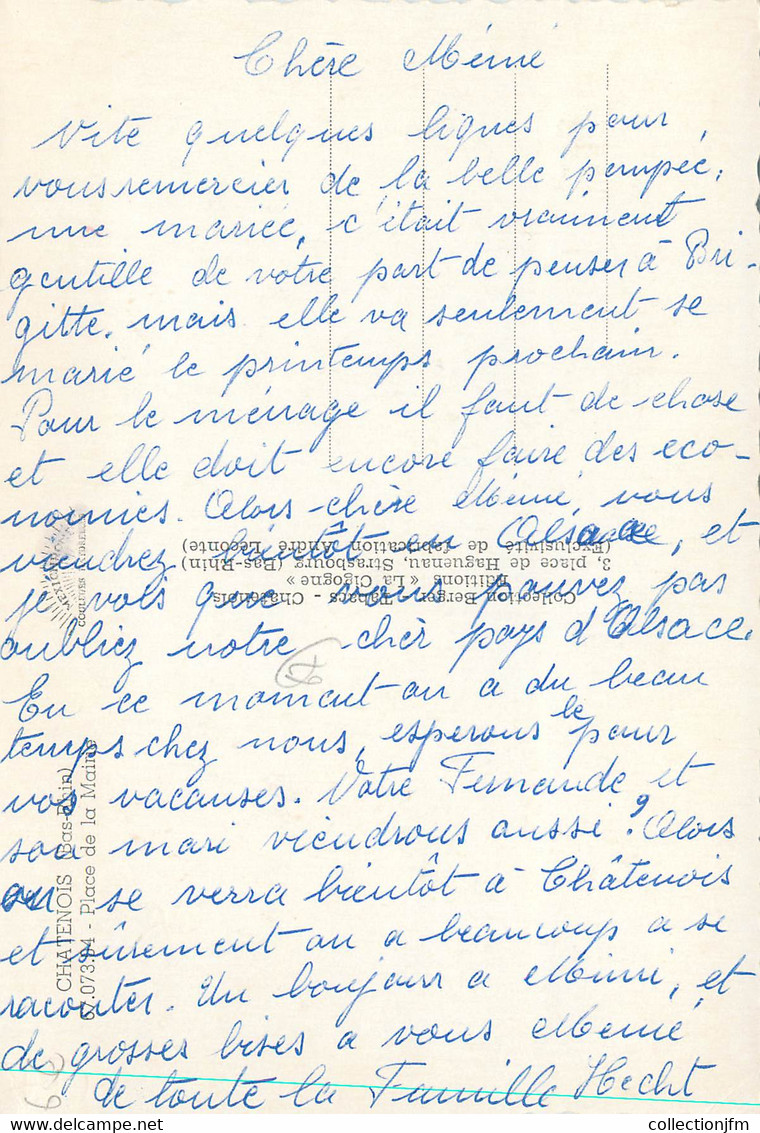 Chère Mémé
Vite quelques lignes pour
vous remercier de la belle poupée,
une mariée, c'était vraiment
gentille de votre part de penser à Bri-
gitte. mais elle va seulement se
marié le printemps prochain.
Pour le ménage il faut de chose
et elle doit encore faire des eco-
nomies. Alors chère Mémé, vous
viendrez bientôt en Alsace, et
je vois que vous pouvez pas
oubliez notre chèr pays d'Alsace.
En ce moment on a du beau
temps chez nous, esperons le pour
vos vacanses. Votre Fernande et
son mari viendrons aussi? Alors
on se verra bientôt à Châtenois
et sûrement on a beaucoup a se
raconter. Un bonjour a Mimi, et
de grosses bises a vous Memé
de toute la Famille Hecht
Collection Berger - Tabacs - Chatenois
Editions « La Cigogne »
3, place de Haguenau, Strasbourg (Bas-Rhin)
(Exclusivité de fabrication André Leconte)
CHATENOIS (Bas-Rhin)
67.073.54 - Place de la Mairie
MEXICHROME
collectionjfm